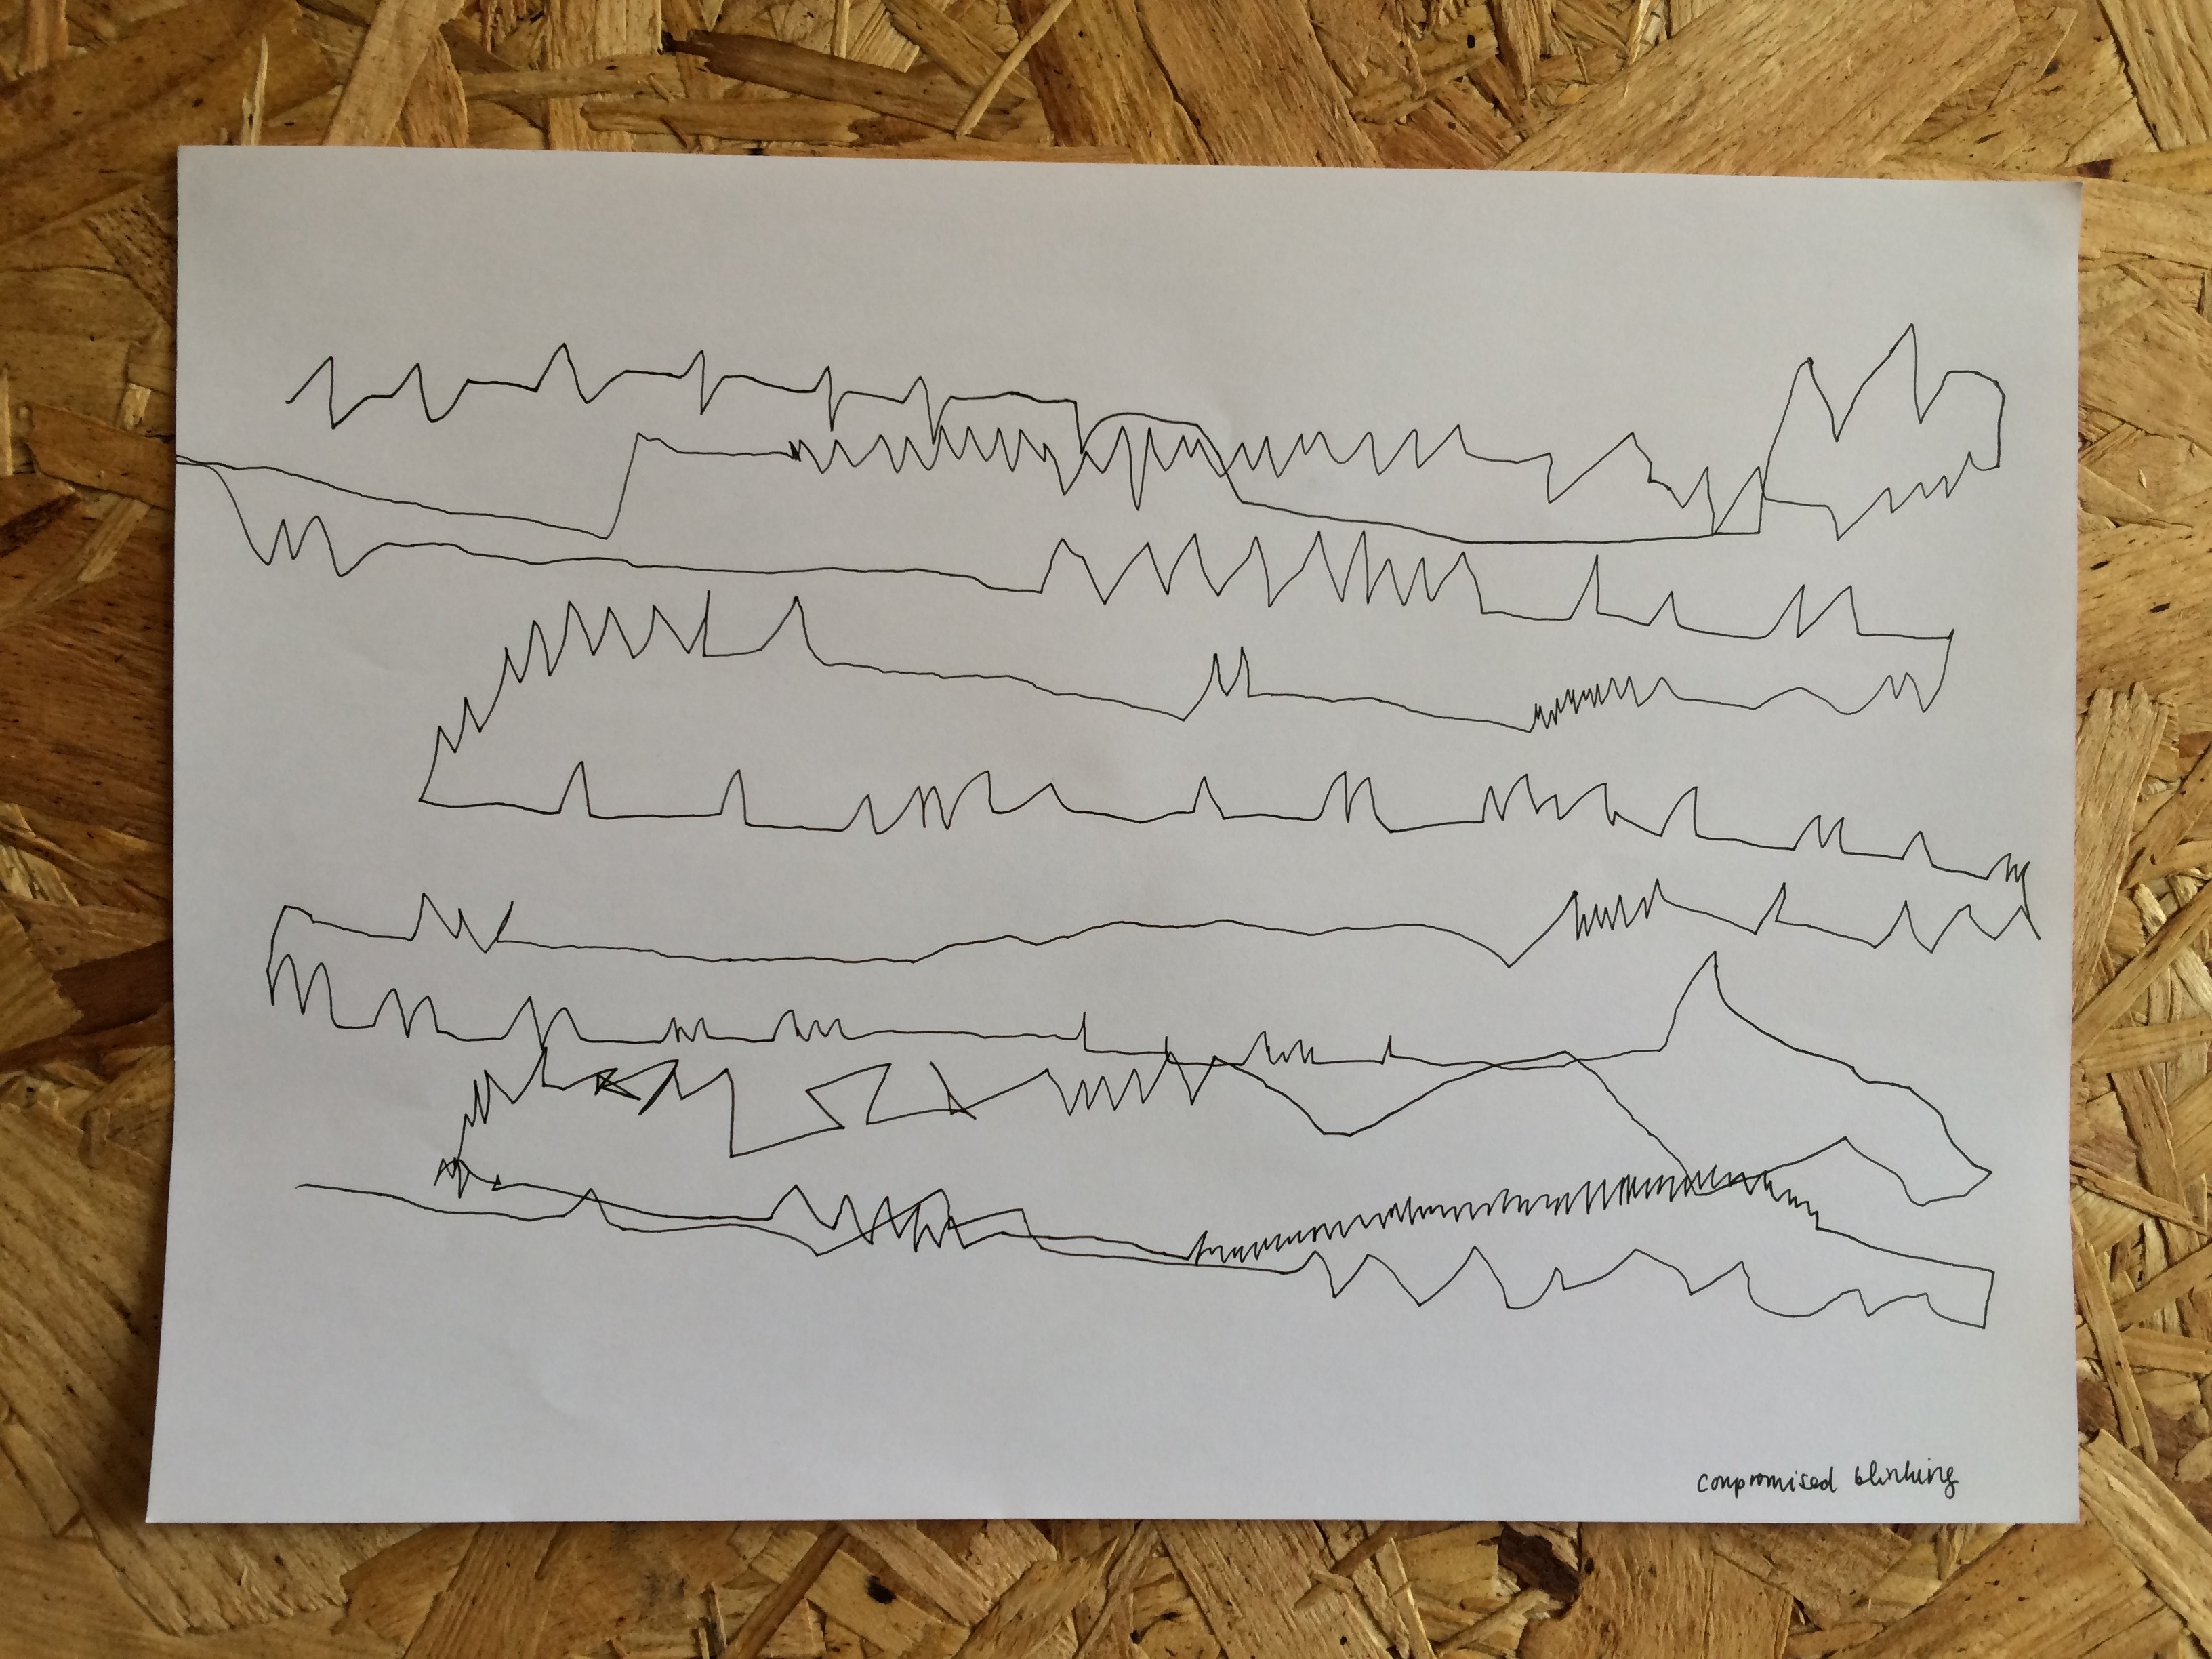 compromised blinking